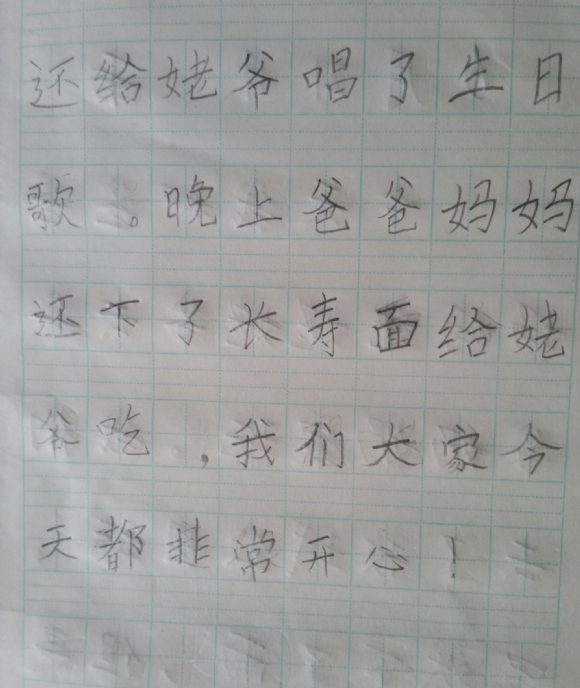 还给姥爷唱了生日
歌。晚上爸爸妈妈
还下了长寿面给姥
爷吃，我们大家今
天都非常开心！